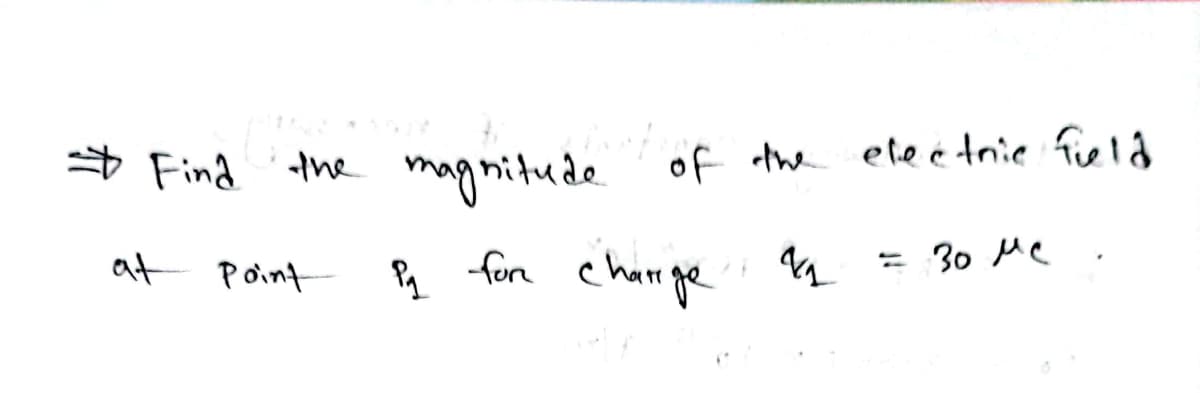 ⇒ Find the magnitude of the electric field
at point P₁ for charge q₁ = 30 μC.